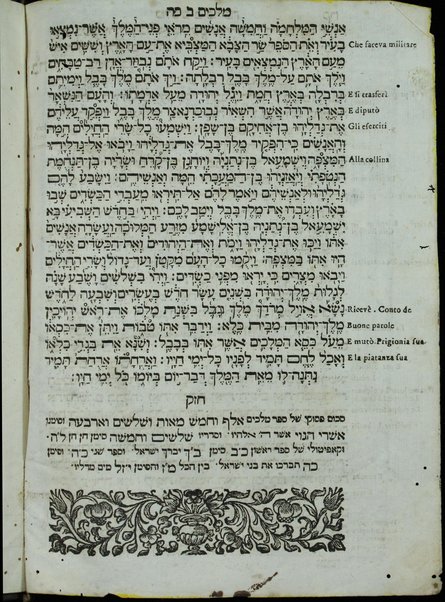 מלכים ב כה
אנשי המלחמה וחמשה אנשים מראי פני־המלך אשר נמצאו
בעיר ואת הספר שר הצבא המצביא את־עם הארץ וששים איש
Che faceva militare
מעם הארץ הנמצאים בעיר: ויקח אתם נבוזר־אדן רב־טבחים
וילך אתם על־מלך בבל רבלתה: ויך אתם מלך בבל וימיתם
ברבלה בארץ חמת ויגל יהודה מעל אדמתו: והעם הנשאר
E si trasferì
בארץ יהודה אשר השאיר נבוכדנאצר מלך בבל ויפקד עליהם
E diputò
את־גדליהו בן־אחיקם בן־שפן: וישמעו כל־שרי החילים המה
Gli eserciti
והאנשים כי־הפקיד מלך־בבל את־גדליהו ויבאו אל־גדליהו
המצפה וישמעאל בן־נתניה ויוחנן בן־קרח ושריה בן־תנחמת
Alla collina
הנטפתי ויאזניהו בן־המעכתי המה ואנשיהם: וישבע להם
גדליהו ולאנשיהם ויאמר להם אל־תיראו מעבדי הכשדים שבו
בארץ ועבדו את־מלך בבל ויטב לכם: ויהי בחדש השביעי בא
ישמעאל בן־נתניה בן־אלישמע מזרע המלוכה ועשרה אנשים
אתו ויכו את־גדליהו וימת ואת־היהודים ואת־הכשדים אשר־
היו אתו במצפה: ויקמו כל־העם מקטן ועד־גדול ושרי החילים
ויבאו מצרים כי יראו מפני כשדים: ויהי בשלשים ושבע שנה
לגלות מלך־יהודה בשנים עשר חדש בעשרים ושבעה לחדש
נשא אויל מרדך מלך בבל בשנת מלכו את־ראש יהויכין
Ricevè. Conto de
מלך־יהודה מבית כלא: וידבר אתו טבות ויתן את־כסאו
Buone parole
מעל כסא המלכים אשר אתו בבבל: ושנא את בגדי כלאו
E mutò. Prigionia sua
ואכל לחם תמיד לפניו כל־ימי חייו: וארחתו ארחת תמיד
E la piatanza sua
נתנה־לו מאת המלך דבר־יום ביומו כל ימי חיו:
חזק
סכום פסוקי של ספר מלכים אלף וחמש מאות ושלשים וארבעה וסימן
אשרי הגוי אשר ה׳ אלהיו: וסדריו שלשים וחמשה סימן
וקאפיטולי של ספר ראשון כ״ב סימן ב״ך יברך ישראל: וספר שני כ״ה: וסימן
כה תברכו את בני ישראל: בין הכל מ״ז והסימן יזל מים מדליו: